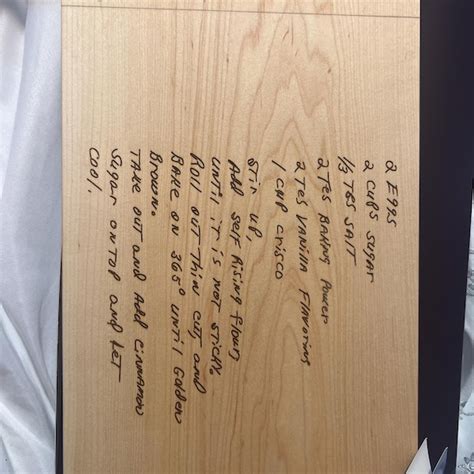 2 Eggs
2 cups sugar
1/2 Tes salt
2 Tes Baking Power
2 Tes Vanilla Flavoring
1 cup crisco
Stir up,
Add self Rising flour
until it is not sticky.
Roll out thin cut, and
Bake on 365° until Golden
Brown.
Take out and Add cinnamon
sugar on top and Let
cool.